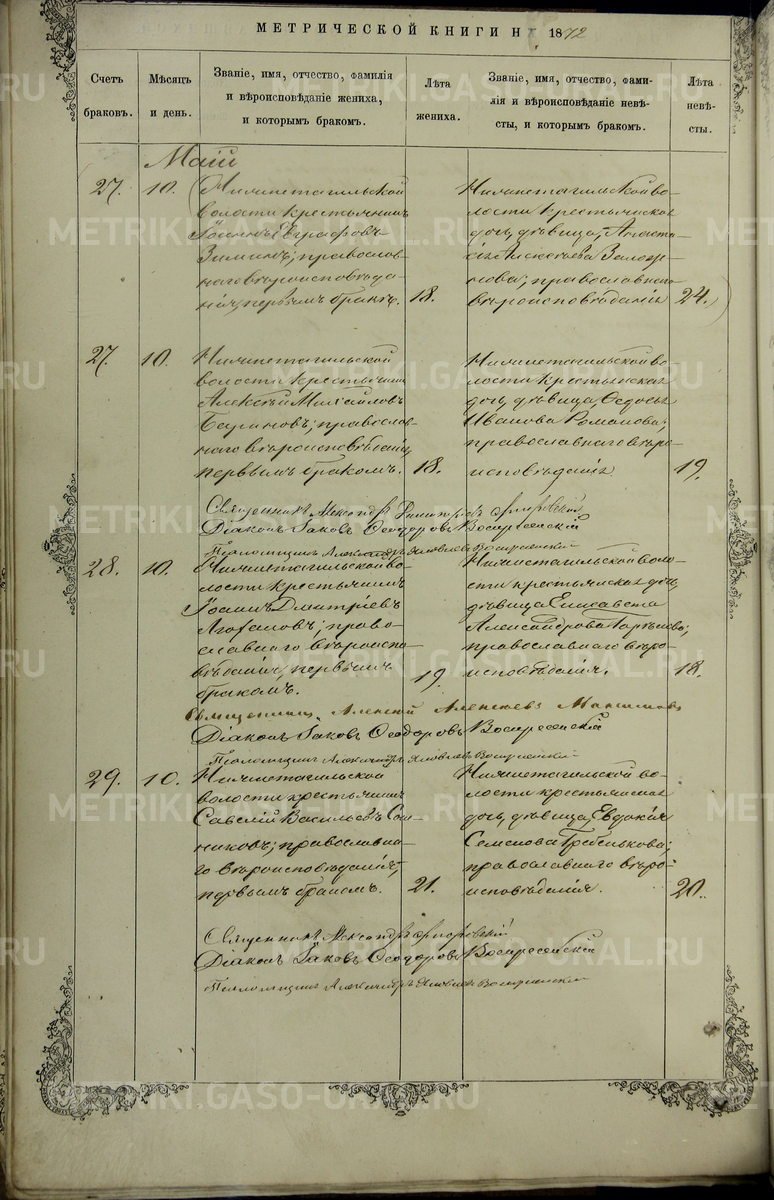 МЕТРИЧЕСКОЙ КНИГИ Н 1872
Счетъ браковъ.
Мѣсяцъ и день.
Званіе, имя, отчество, фамилія
и вѣроисповѣданіе жениха,
и которымъ бракомъ.
Лѣта жениха.
Званіе, имя, отчество, фами-
лія и вѣроисповѣданіе невѣ-
сты, и которымъ бракомъ.
Лѣта невѣ-
сты.
Маій
27. 10. Нижнетагильской
волости крестьянинъ
Іоаннъ Евграфовъ
Зиминъ; православ-
наго вѣроисповѣда-
нія, первымъ бракомъ. 18.
Нижнетагильской во-
лости крестьянская
дочь, дѣвица, Анаста-
сія Алексѣева
православнаго
вѣроисповѣданія 24.
27. 10. Нижнетагильской
волости крестьянинъ
Алексѣй Михайловъ
православ-
наго вѣроисповѣданія,
первымъ бракомъ. 18.
Нижнетагильской во-
лости крестьянская
дочь, дѣвица, Ѳедосья
Иванова Романова;
православнаго вѣро-
исповѣданія 19.
Священникъ Александръ
Діаконъ Іаковъ Ѳеодоровъ Воскресенскій
Псаломщикъ Александръ Яковлевъ Воскресенскій
28. 10. Нижнетагильской во-
лости крестьянинъ
Іоаннъ Дмитріевъ
Агафановъ; право-
славнаго вѣроиспо-
вѣданія, первымъ
бракомъ. 19.
Нижнетагильской воло-
сти крестьянская дочь,
дѣвица Елисавета
Александрова
православнаго вѣро-
исповѣданія. 18.
Священникъ Алексій Алексѣевъ
Діаконъ Іаковъ Ѳеодоровъ Воскресенскій
Псаломщикъ Александръ Яковлевъ Воскресенскій
29. 10. Нижнетагильской
волости крестьянинъ
Савелій Васильевъ
православна-
го вѣроисповѣданія,
первымъ бракомъ. 21.
Нижнетагильской во-
лости крестьянская
дочь, дѣвица, Евдокія
Семенова Гребенькова;
православнаго вѣро-
исповѣданія. 20.
Священникъ Александръ
Діаконъ Іаковъ Ѳеодоровъ Воскресенскій
Псаломщикъ Александръ Яковлевъ Воскресенскій
METRIKI.GASO-URAL.RU